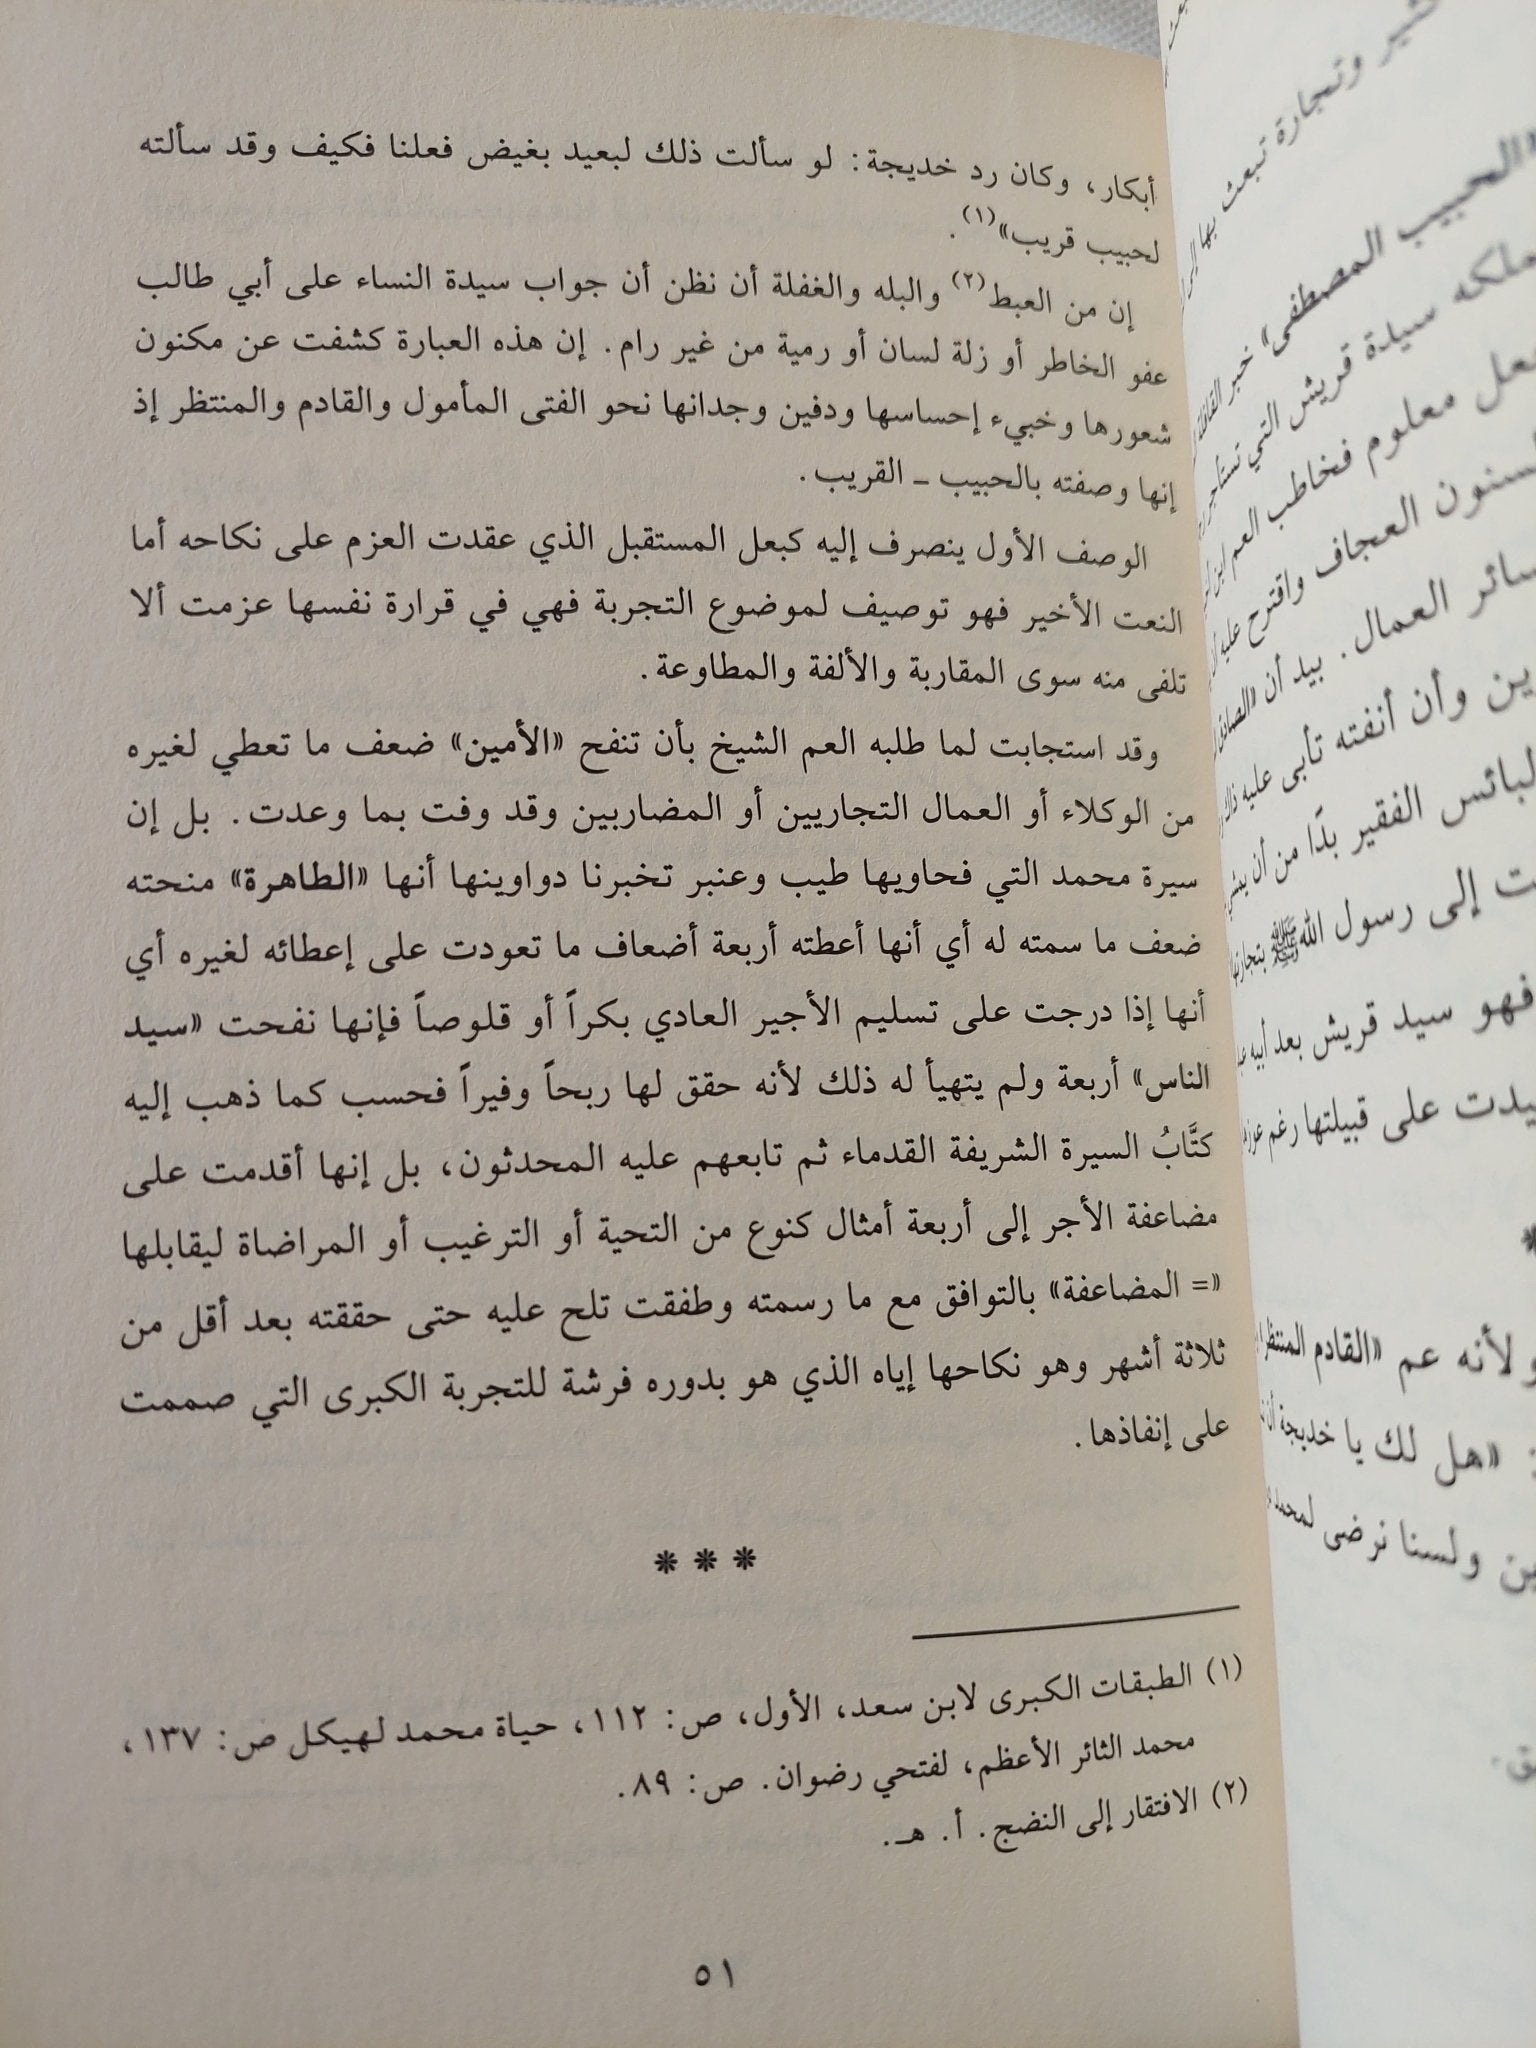 أبكار، وكان رد خديجة: لو سألت ذلك لبعيد بغيض فعلنا فكيف وقد سألته
لحبيب قريب»(١).
إن من العبط(٢) والبله والغفلة أن نظن أن جواب سيدة النساء على أبي طالب
عفو الخاطر أو زلة لسان أو رمية من غير رام. إن هذه العبارة كشفت عن مكنون
شعورها وخبيء إحساسها ودفين وجدانها نحو الفتى المأمول والقادم والمنتظر إذ
إنها وصفته بالحبيب ـ القريب.
الوصف الأول ينصرف إليه كبعل المستقبل الذي عقدت العزم على نكاحه أما
النعت الأخير فهو توصيف لموضوع التجربة فهي في قرارة نفسها عزمت ألا
تلفى منه سوى المقاربة والألفة والمطاوعة.
وقد استجابت لما طلبه العم الشيخ بأن تنفح «الأمين» ضعف ما تعطي لغيره
من الوكلاء أو العمال التجاريين أو المضاربين وقد وفت بما وعدت. بل إن
سيرة محمد التي فحاويها طيب وعنبر تخبرنا دواوينها أنها «الطاهرة» منحته
ضعف ما سمته له أي أنها أعطته أربعة أضعاف ما تعودت على إعطائه لغيره أي
أنها إذا درجت على تسليم الأجير العادي بكراً أو قلوصاً فإنها نفحت «سيد
الناس» أربعة ولم يتهيأ له ذلك لأنه حقق لها ربحاً وفيراً فحسب كما ذهب إليه
كتَّابُ السيرة الشريفة القدماء ثم تابعهم عليه المحدثون، بل إنها أقدمت على
مضاعفة الأجر إلى أربعة أمثال كنوع من التحية أو الترغيب أو المراضاة ليقابلها
«= المضاعفة» بالتوافق مع ما رسمته وطفقت تلح عليه حتى حققته بعد أقل من
ثلاثة أشهر وهو نكاحها إياه الذي هو بدوره فرشة للتجربة الكبرى التي صممت
على إنفاذها.
* * *
(١) الطبقات الكبرى لابن سعد، الأول، ص: ١١٢، حياة محمد لهيكل ص: ١٣٧،
محمد الثائر الأعظم، لفتحي رضوان. ص: ٨٩.
(٢) الافتقار إلى النضج. أ. هـ.
٥١
وتجارة تبعث بها
الحبيب المصطفى» خبر القافلة
سيدة قريش التي
معلوم فخاطب العم ابن
السنون العجاف واقترح عليه
سائر العمال. بيد أن «الصادق
وأن أنفته تأبى عليه ذلك
البائس الفقير بدًا من أن
إلى رسول الله ﷺ بتجارتها
فهو سيد قريش بعد أبيه
على قبيلتها رغم
*
ولأنه عم «القادم المنتظر
: «هل لك يا خديجة أن
ولسنا نرضى لمحمد